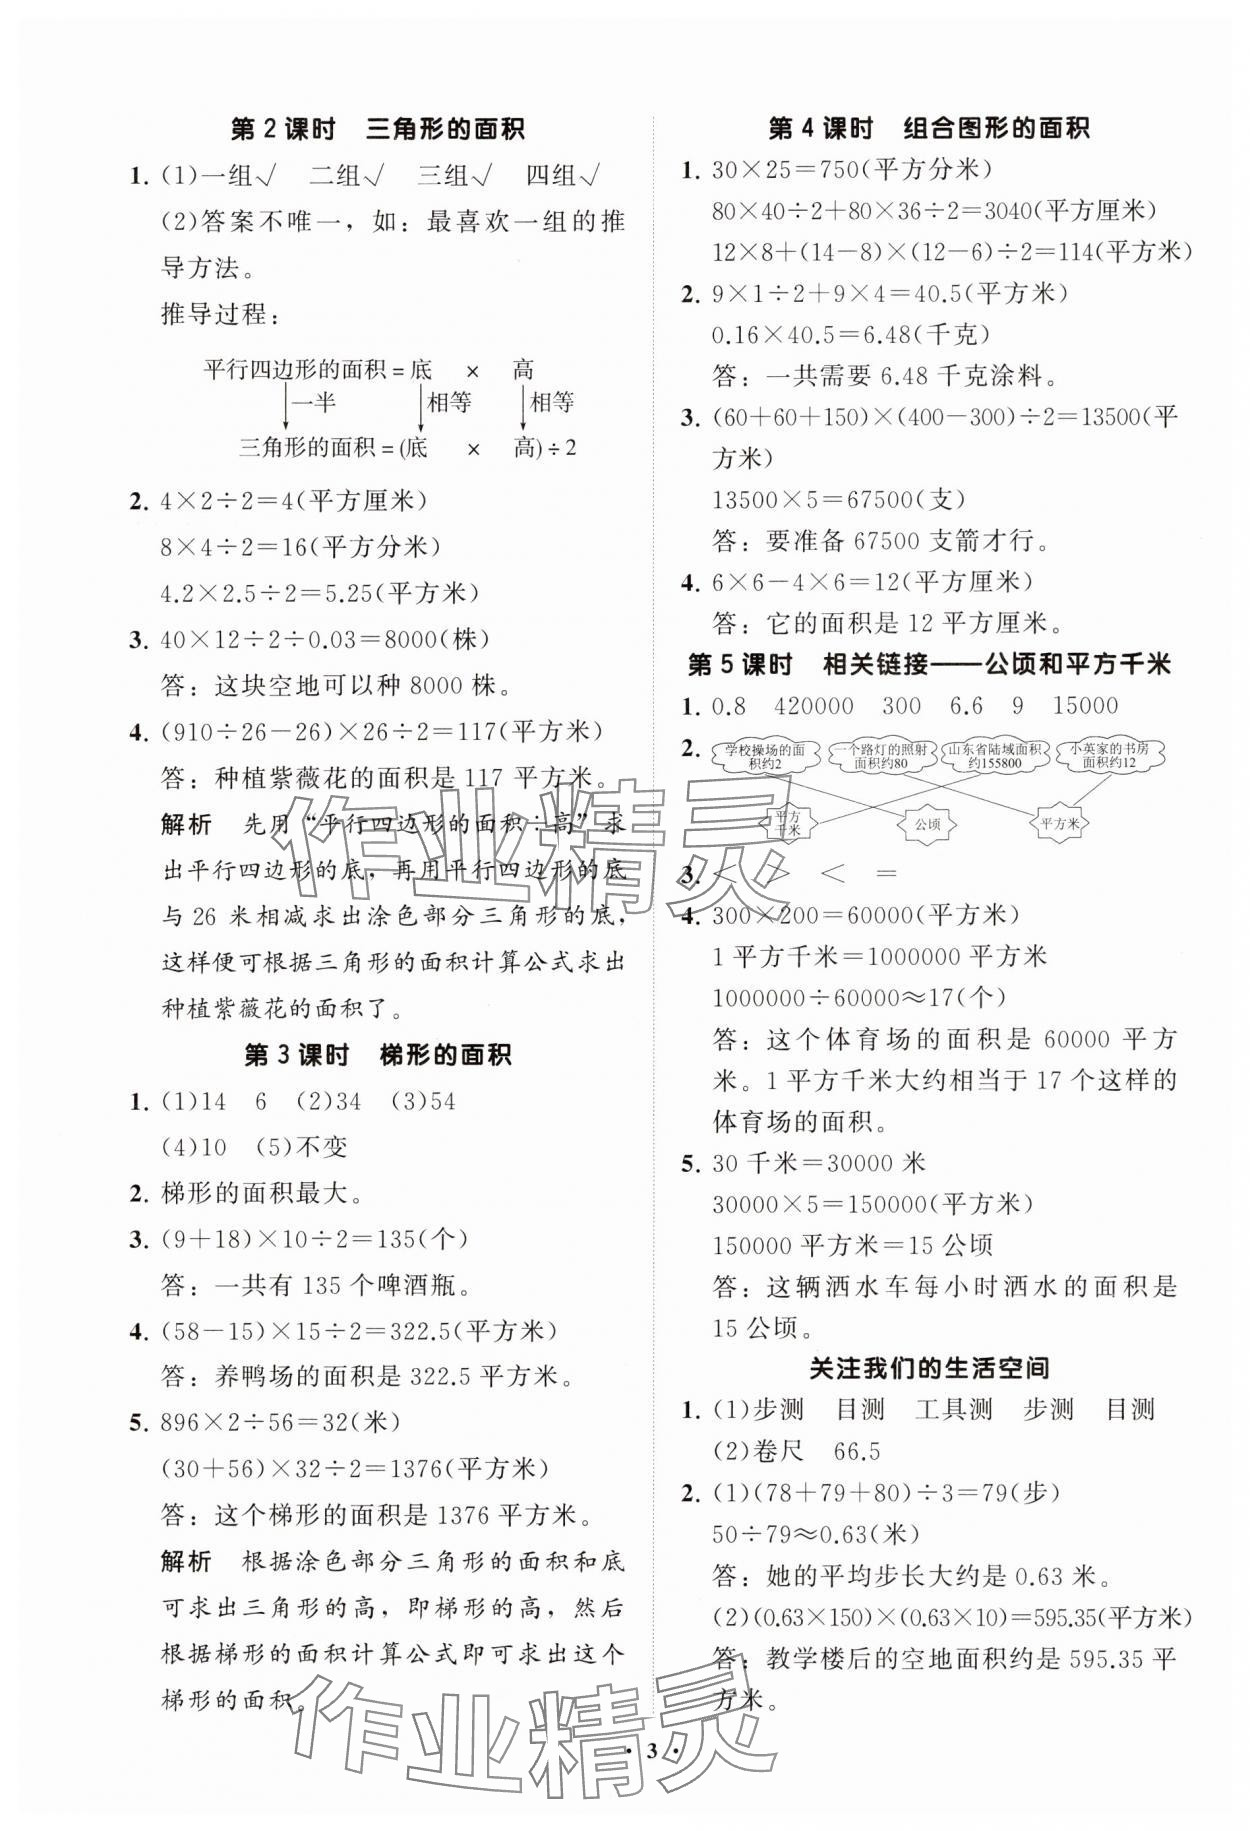 第2课时　三角形的面积
1. (1)一组√　二组√　三组√　四组√
(2)答案不唯一，如：最喜欢一组的推
导方法。
推导过程：
平行四边形的面积＝底　×　高
一半　相等　相等
三角形的面积＝(底　×　高)÷2
2. 4×2÷2＝4(平方厘米)
8×4÷2＝16(平方分米)
4.2×2.5÷2＝5.25(平方米)
3. 40×12÷2÷0.03＝8000(株)
答：这块空地可以种 8000 株。
4. (910÷26－26)×26÷2＝117(平方米)
答：种植紫薇花的面积是 117 平方米。
解析　先用“平行四边形的面积÷高”求
出平行四边形的底，再用平行四边形的底
与 26 米相减求出涂色部分三角形的底，
这样便可根据三角形的面积计算公式求出
种植紫薇花的面积了。
第3课时　梯形的面积
1. (1)14　6　(2)34　(3)54
(4)10　(5)不变
2. 梯形的面积最大。
3. (9＋18)×10÷2＝135(个)
答：一共有 135 个啤酒瓶。
4. (58－15)×15÷2＝322.5(平方米)
答：养鸭场的面积是 322.5 平方米。
5. 896×2÷56＝32(米)
(30＋56)×32÷2＝1376(平方米)
答：这个梯形的面积是 1376 平方米。
解析　根据涂色部分三角形的面积和底
可求出三角形的高，即梯形的高，然后
根据梯形的面积计算公式即可求出这个
梯形的面积。
第4课时　组合图形的面积
1. 30×25＝750(平方分米)
80×40÷2＋80×36÷2＝3040(平方厘米)
12×8＋(14－8)×(12－6)÷2＝114(平方米)
2. 9×1÷2＋9×4＝40.5(平方米)
0.16×40.5＝6.48(千克)
答：一共需要 6.48 千克涂料。
3. (60＋60＋150)×(400－300)÷2＝13500(平
方米)
13500×5＝67500(支)
答：要准备 67500 支箭才行。
4. 6×6－4×6＝12(平方厘米)
答：它的面积是 12 平方厘米。
第5课时　相关链接——公顷和平方千米
1. 0.8　420000　300　6.6　9　15000
2. 学校操场的面积约2　一个路灯的照射面积约80　山东省陆域面积约155800　小英家的书房面积约12
平方千米　公顷　平方米
3. ＜　＞　＜　＝
4. 300×200＝60000(平方米)
1 平方千米＝1000000 平方米
1000000÷60000≈17(个)
答：这个体育场的面积是 60000 平方
米。1 平方千米大约相当于 17 个这样的
体育场的面积。
5. 30 千米＝30000 米
30000×5＝150000(平方米)
150000 平方米＝15 公顷
答：这辆洒水车每小时洒水的面积是
15 公顷。
关注我们的生活空间
1. (1)步测　目测　工具测　步测　目测
(2)卷尺　66.5
2. (1)(78＋79＋80)÷3＝79(步)
50÷79≈0.63(米)
答：她的平均步长大约是 0.63 米。
(2)(0.63×150)×(0.63×10)＝595.35(平方米)
答：教学楼后的空地面积约是 595.35 平
方米。
作业精灵
作业精灵
· 3 ·